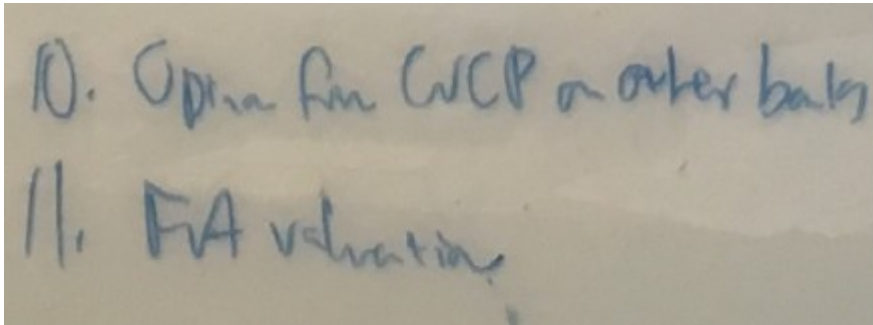 10. from CWCP on other banks
11. FA valuation